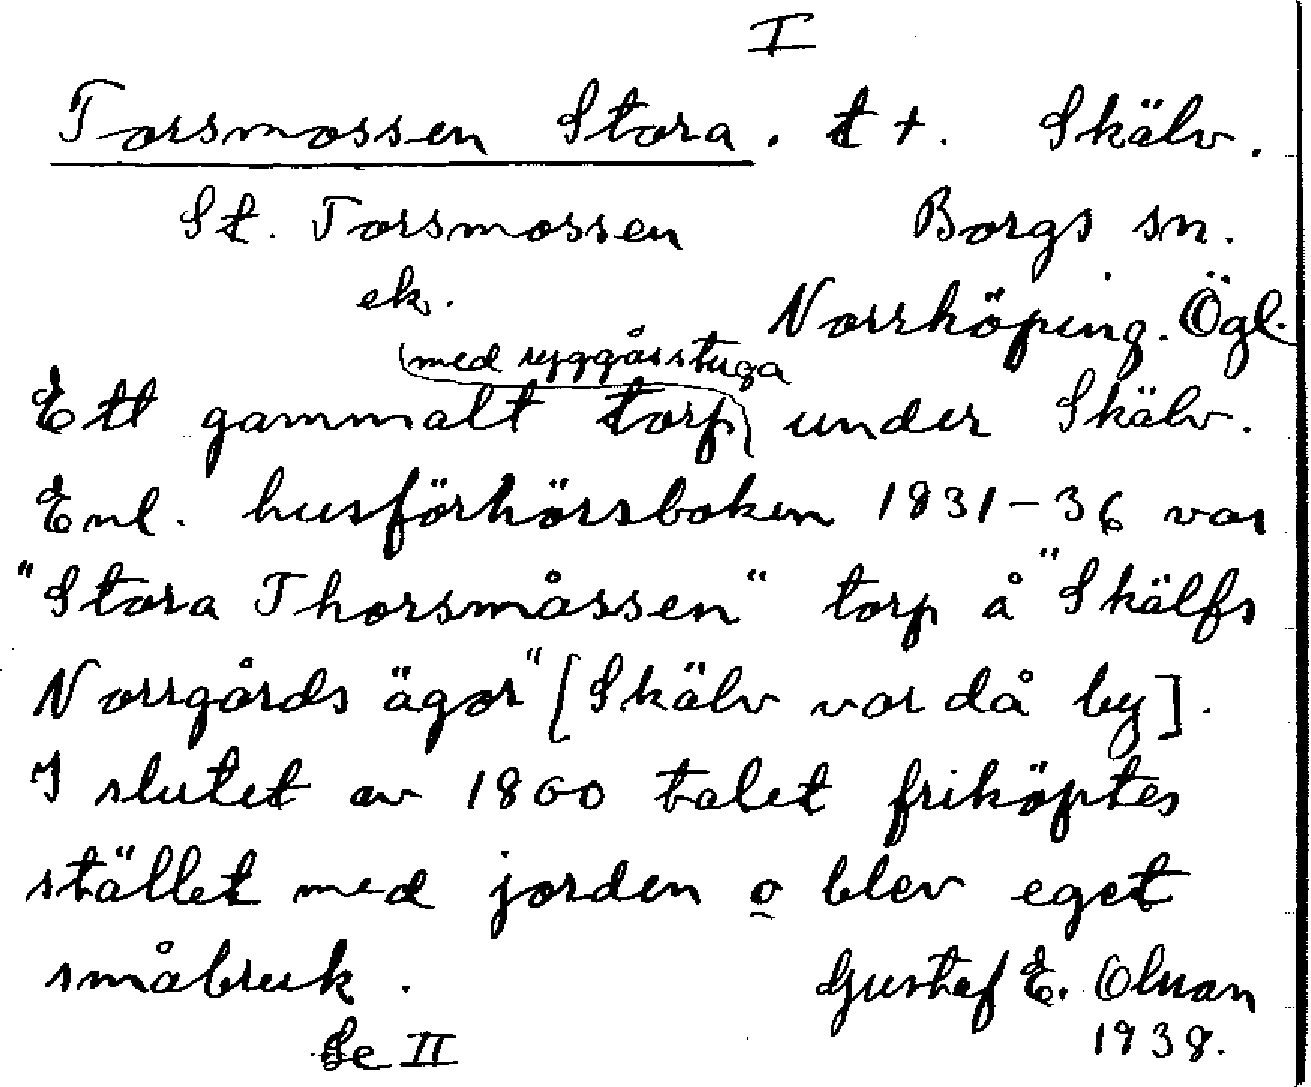 I
Torsmossen Stora. t +. Skälv.
St. Torsmossen Borgs sn.
ek. Norrköping. Ögl.
med ryggåsstuga
Ett gammalt torp under Skälv.
Enl. husförhörsboken 1831-36 var
"Stora Thorsmåssen" torp å "Skälfs
Norrgårds ägor" [Skälv var då by].
I slutet av 1800 talet friköptes
stället med jorden o blev eget
småbruk. Gustaf E. Olsson
1938.
Se II